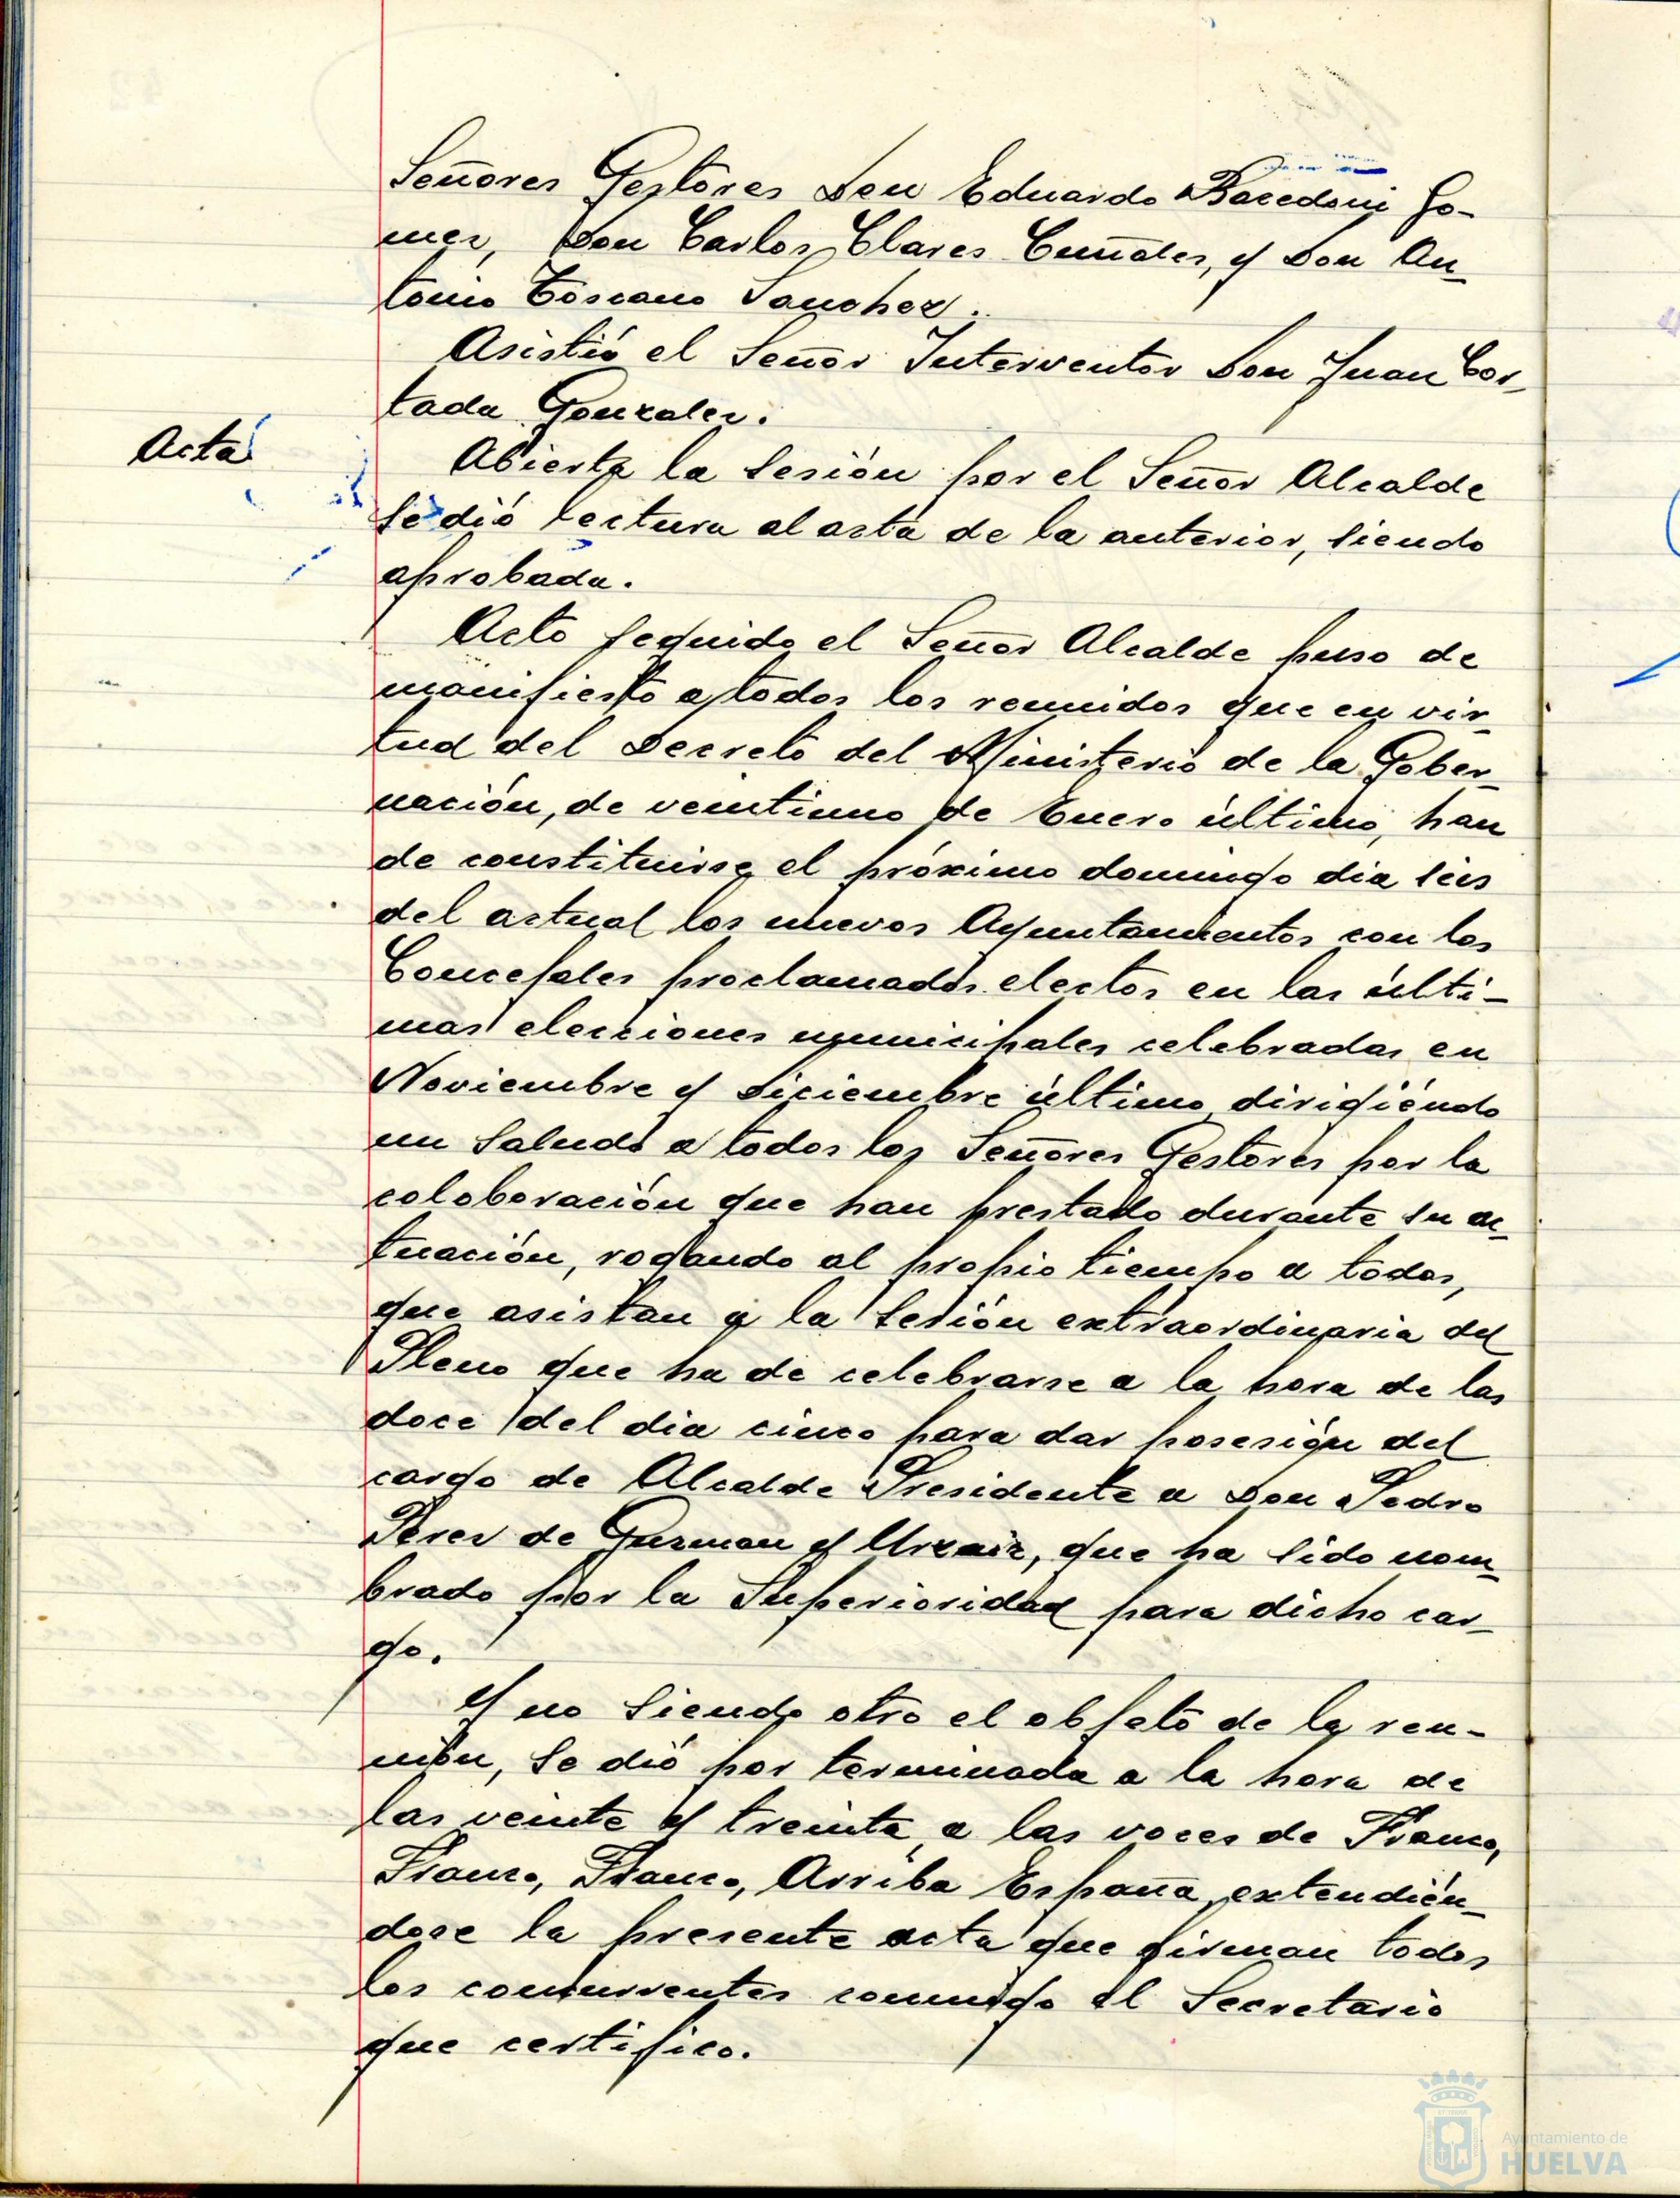 Señores Gestores Don Eduardo Bacedoni Go-
mez, Don Carlos Clares Cumales, y Don An-
tonio Toscano Sanchez.
Asistió el Señor Interventor Don Juan Cor-
tada Gonzalez.
Acta
Abierta la sesión por el Señor Alcalde
se dió lectura al acta de la anterior, siendo
aprobada.
Acto seguido el Señor Alcalde puso de
manifiesto a todos los reunidos que en vir-
tud del Decreto del Ministerio de la Gober-
nación, de veintiuno de Enero último, han
de constituirse el próximo domingo dia seis
del actual los nuevos Ayuntamientos con los
Concejales proclamados electos en las últi-
mas elecciones municipales celebradas en
Noviembre y Diciembre último dirigiéndo
un saludo a todos los Señores Gestores por la
coloboración que han prestado durante su ac-
tuación, rogando al propio tiempo a todos,
que asistan a la sesión extraordinaria del
Pleno que ha de celebrarse a la hora de las
doce del dia cinco para dar posesión del
cargo de Alcalde Presidente a Don Pedro
Perez de Guzman y Urzaiz, que ha sido nom-
brado por la Superioridad para dicho car-
go.
Y no siendo otro el objeto de la reu-
nión, se dió por terminada a la hora de
las veinte y treinta a las voces de Franco,
Franco, Franco, Arriba España, extendién-
dose la presente acta que firman todos
los concurrentes conmigo el Secretario
que certifico.
Ayuntamiento de
HUELVA